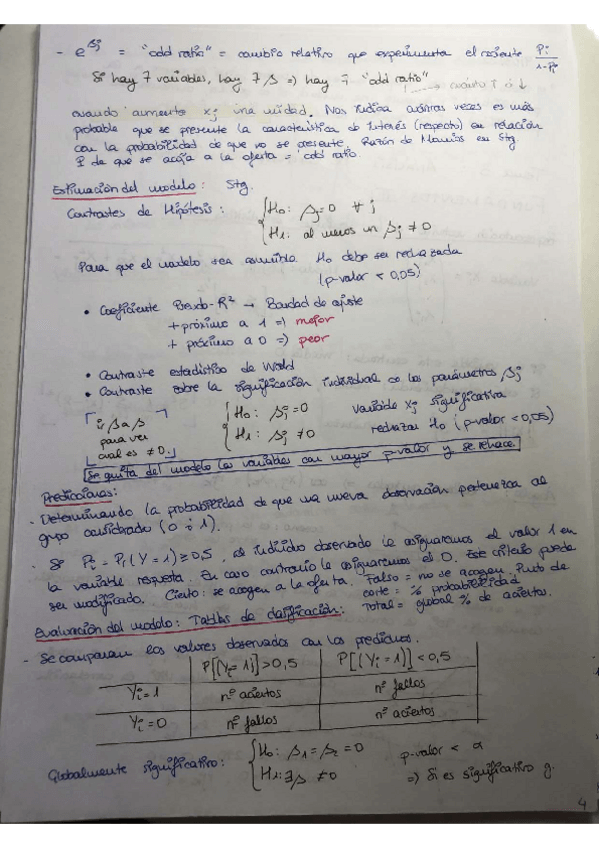 - e^βj = "odd ratio" = cambio relativo que experimenta el cociente Pi / 1-Pi
Si hay 7 variables, hay 7 β => hay 7 "odd ratio"
→ cuánto ↑ o ↓
cuando aumenta xj una unidad. Nos indica cuántas veces es más
probable que se presente la característica de interés (respecto) en relación
con la probabilidad de que no se presente. Razón de Momios en Stg.
P de que se acoja a la oferta = odd ratio.
Estimación del modelo: Stg.
Contrastes de Hipótesis: { H0: βj=0 ∀ j
H1: al menos un βj ≠ 0
Para que el modelo sea admisible H0 debe ser rechazada
(p-valor < 0,05)
• Coeficiente Pseudo-R² → Bondad de ajuste
+ próximo a 1 => mejor
+ próximo a 0 => peor
• Contraste estadístico de Wald
• Contraste sobre la significación individual de los parámetros βj
ir β a β
para ver
cual es ≠ 0.
{ H0: βj = 0
H1: βj ≠ 0
variable xj significativa
rechazar H0 (p-valor < 0,05)
Se quita del modelo las variables con mayor p-valor y se rehace.
Predicciones:
- Determinando la probabilidad de que una nueva observación pertenezca al
grupo considerado (0 ó 1).
- Si Pi = Pr (Y = 1) ≥ 0,5, al individuo observado le asignaremos el valor 1 en
la variable respuesta. En caso contrario le asignaremos el 0. Este criterio puede
ser modificado. Cierto: se acogen a la oferta. Falso = no se acogen. Punto de
corte = % probabilidad
Total = global % de aciertos.
Evaluación del modelo: Tablas de clasificación:
- Se comparan los valores observados con los predichos.
P[(Yi = 1)] > 0,5 P[(Yi = 1)] < 0,5
Yi = 1 nº aciertos nº fallos
Yi = 0 nº fallos nº aciertos
Globalmente significativo: { H0: β1 = β2 = 0 p-valor < α
H1: ∃β ≠ 0 => Si es significativo g.
4